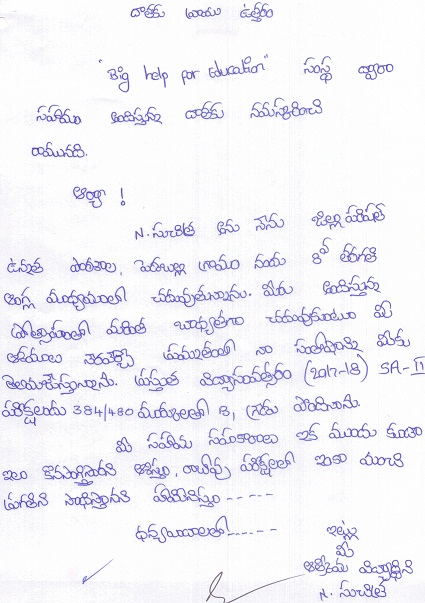 దాతకు వ్రాయు ఉత్తరం
"Big help for Education" సంస్థ ద్వారా
సహాయం అందిస్తున్న దాతకు నమస్కరించి
వ్రాయునది.
ఆర్యా !
N. సుచరిత అను నేను జిల్లా పరిషత్
ఉన్నత పాఠశాల, గ్రామం నందు 8వ తరగతి
ఆంగ్ల మాధ్యమంలో చదువుతున్నాను. మీరు అందిస్తున్న
ప్రోత్సాహంతో మరింత బాధ్యతగా చదువుకుంటూ మీ
ఆశయాలు నెరవేర్చే నా సంతోషాన్ని మీకు
తెలియచేస్తున్నాను. ప్రస్తుత విద్యాసంవత్సరం (2017-18) SA-II
పరీక్షలందు 384/480 మార్కులతో B1 గ్రేడు పొందినాను.
మీ సహాయ సహకారాలు ఇక ముందు కూడా
ఇలా కొనసాగిస్తారని ఆశిస్తూ, రాబోవు పరీక్షలలో ఇంకా మంచి
ప్రగతిని సాధిస్తానని హామినిస్తూ -----
ధన్యవాదాలతో!-----
ఇట్లు
మీ
విద్యార్థిని
N. సుచరిత